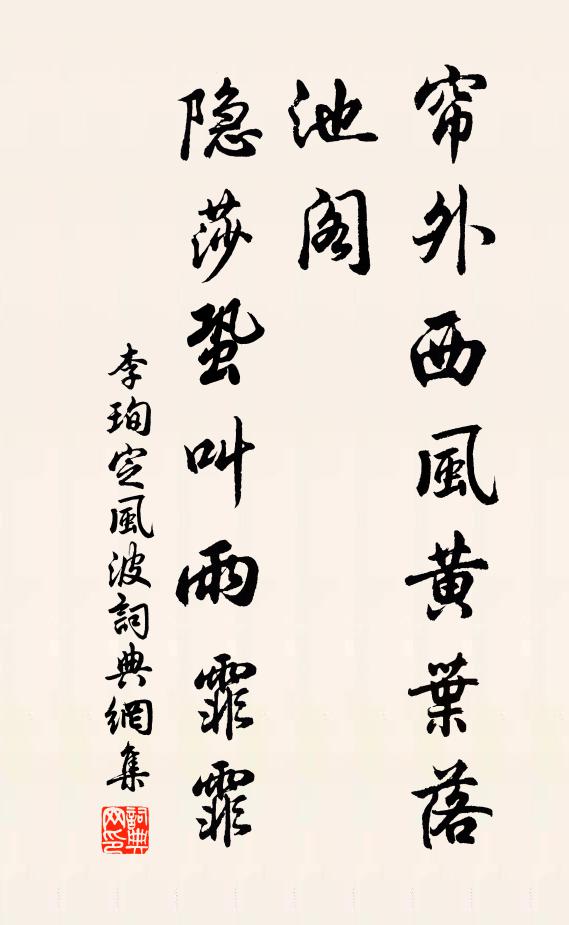 帘外西風黄葉落
池阁
隐莎蛩叫雨霏霏
李珣定風波詞典網集
詞典网印